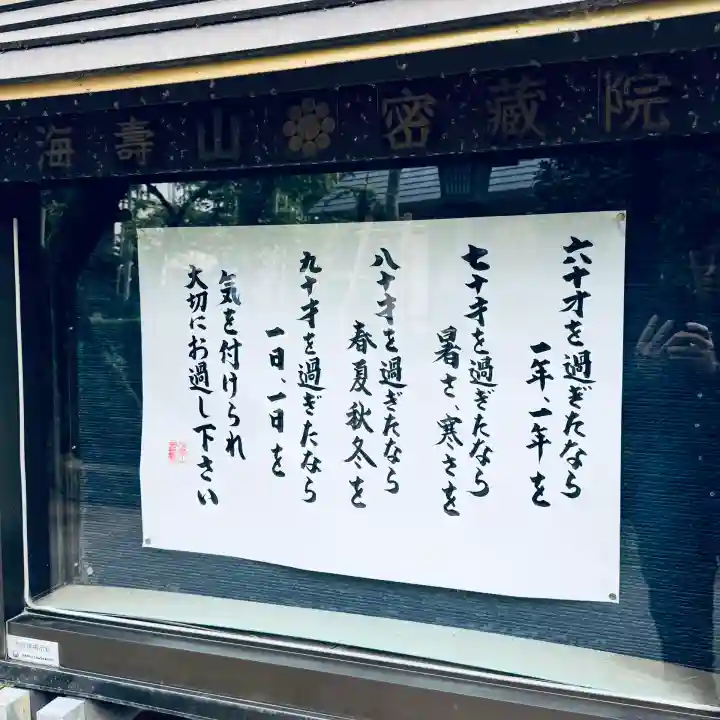 海壽山 密藏院
六十才を過ぎたなら
一年、一年を
七十才を過ぎたなら
暑さ、寒さを
八十才を過ぎたなら
春夏秋冬を
九十才を過ぎたなら
一日、一日を
気を付けられ
大切にお過し下さい